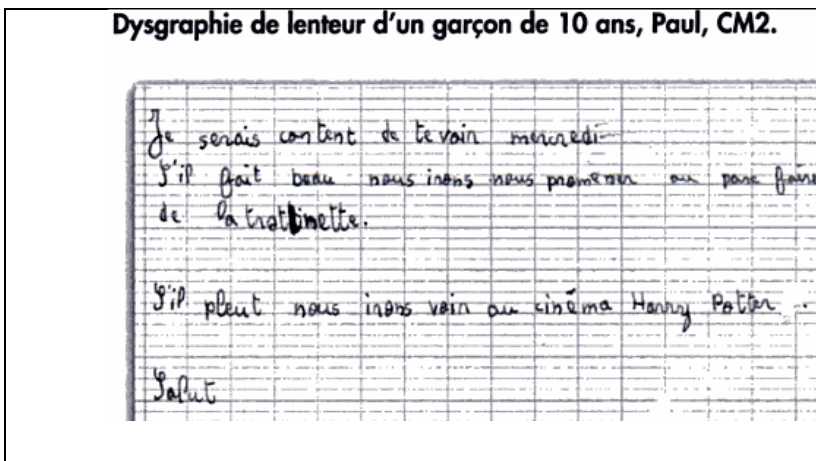 Dysgraphie de lenteur d'un garçon de 10 ans, Paul, CM2.
Je serais content de te voir mercredi
S'il fait beau nous irons nous promener au parc faire
de la trottinette.
S'il pleut nous irons voir au cinéma Harry Potter.
Salut